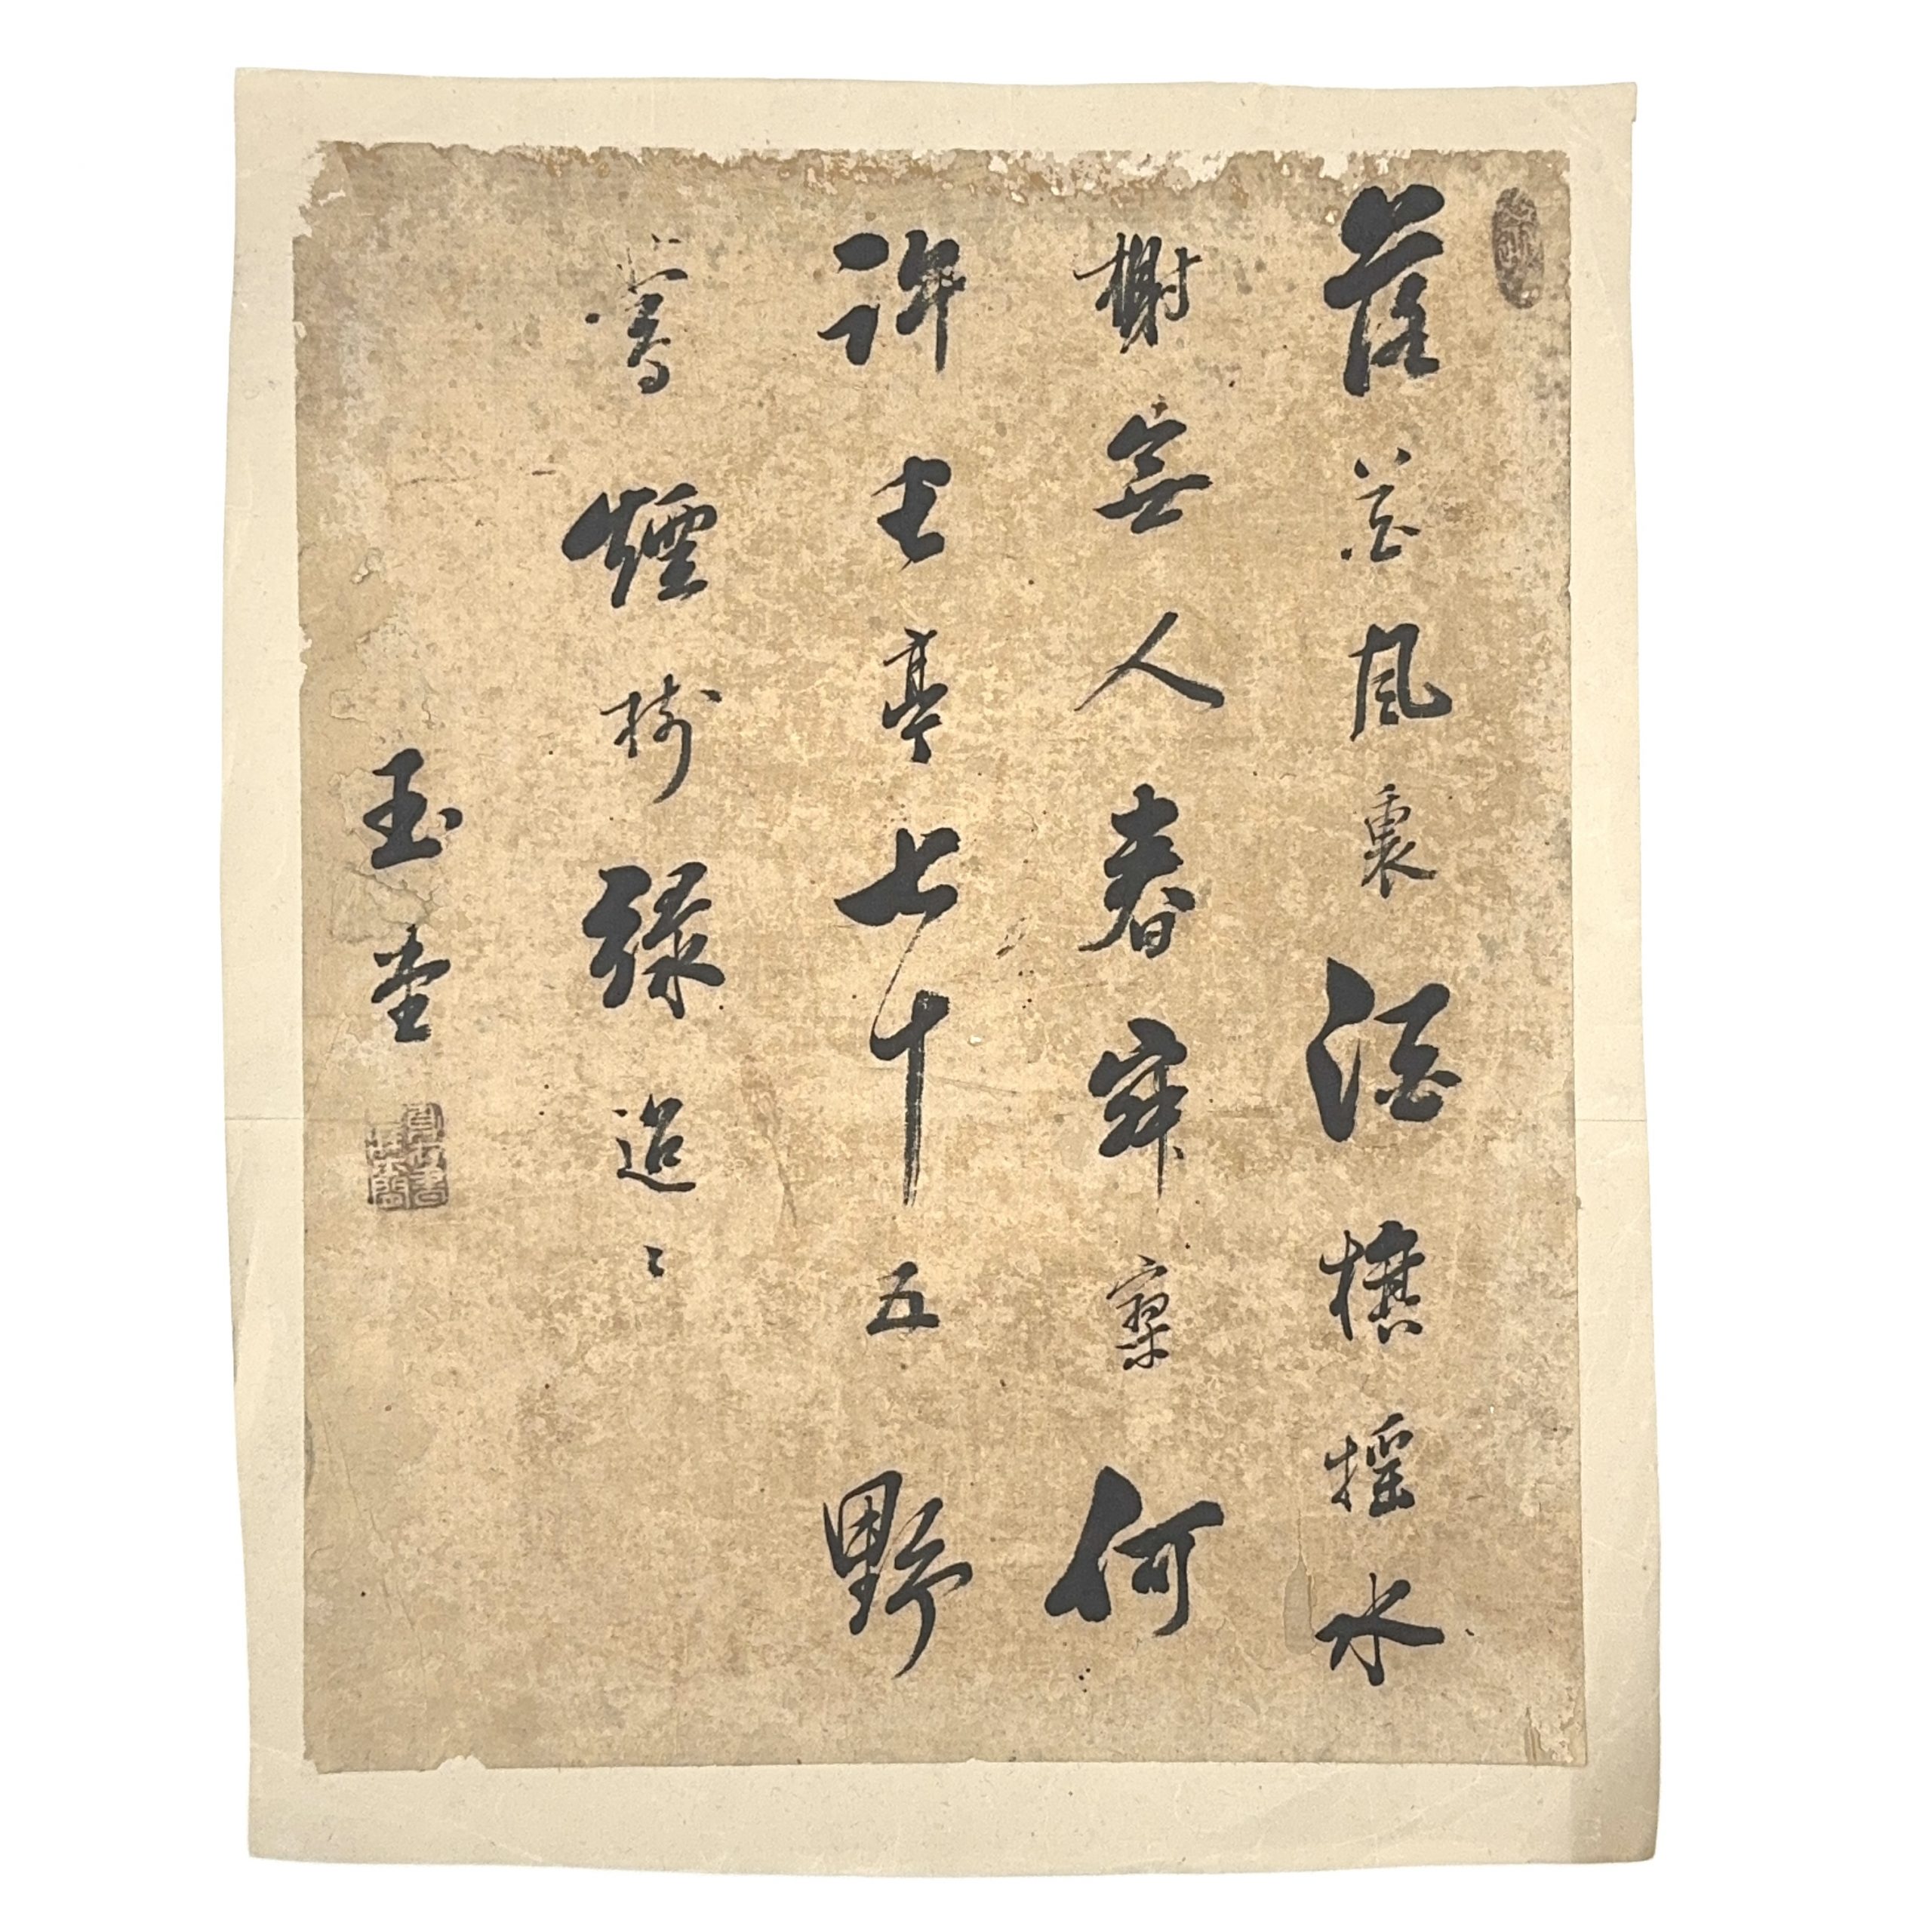 落花風裏酒旗搖水
榭無人春寂寥何
許長亭七十五野
鶯煙樹綠迢〻
玉堂